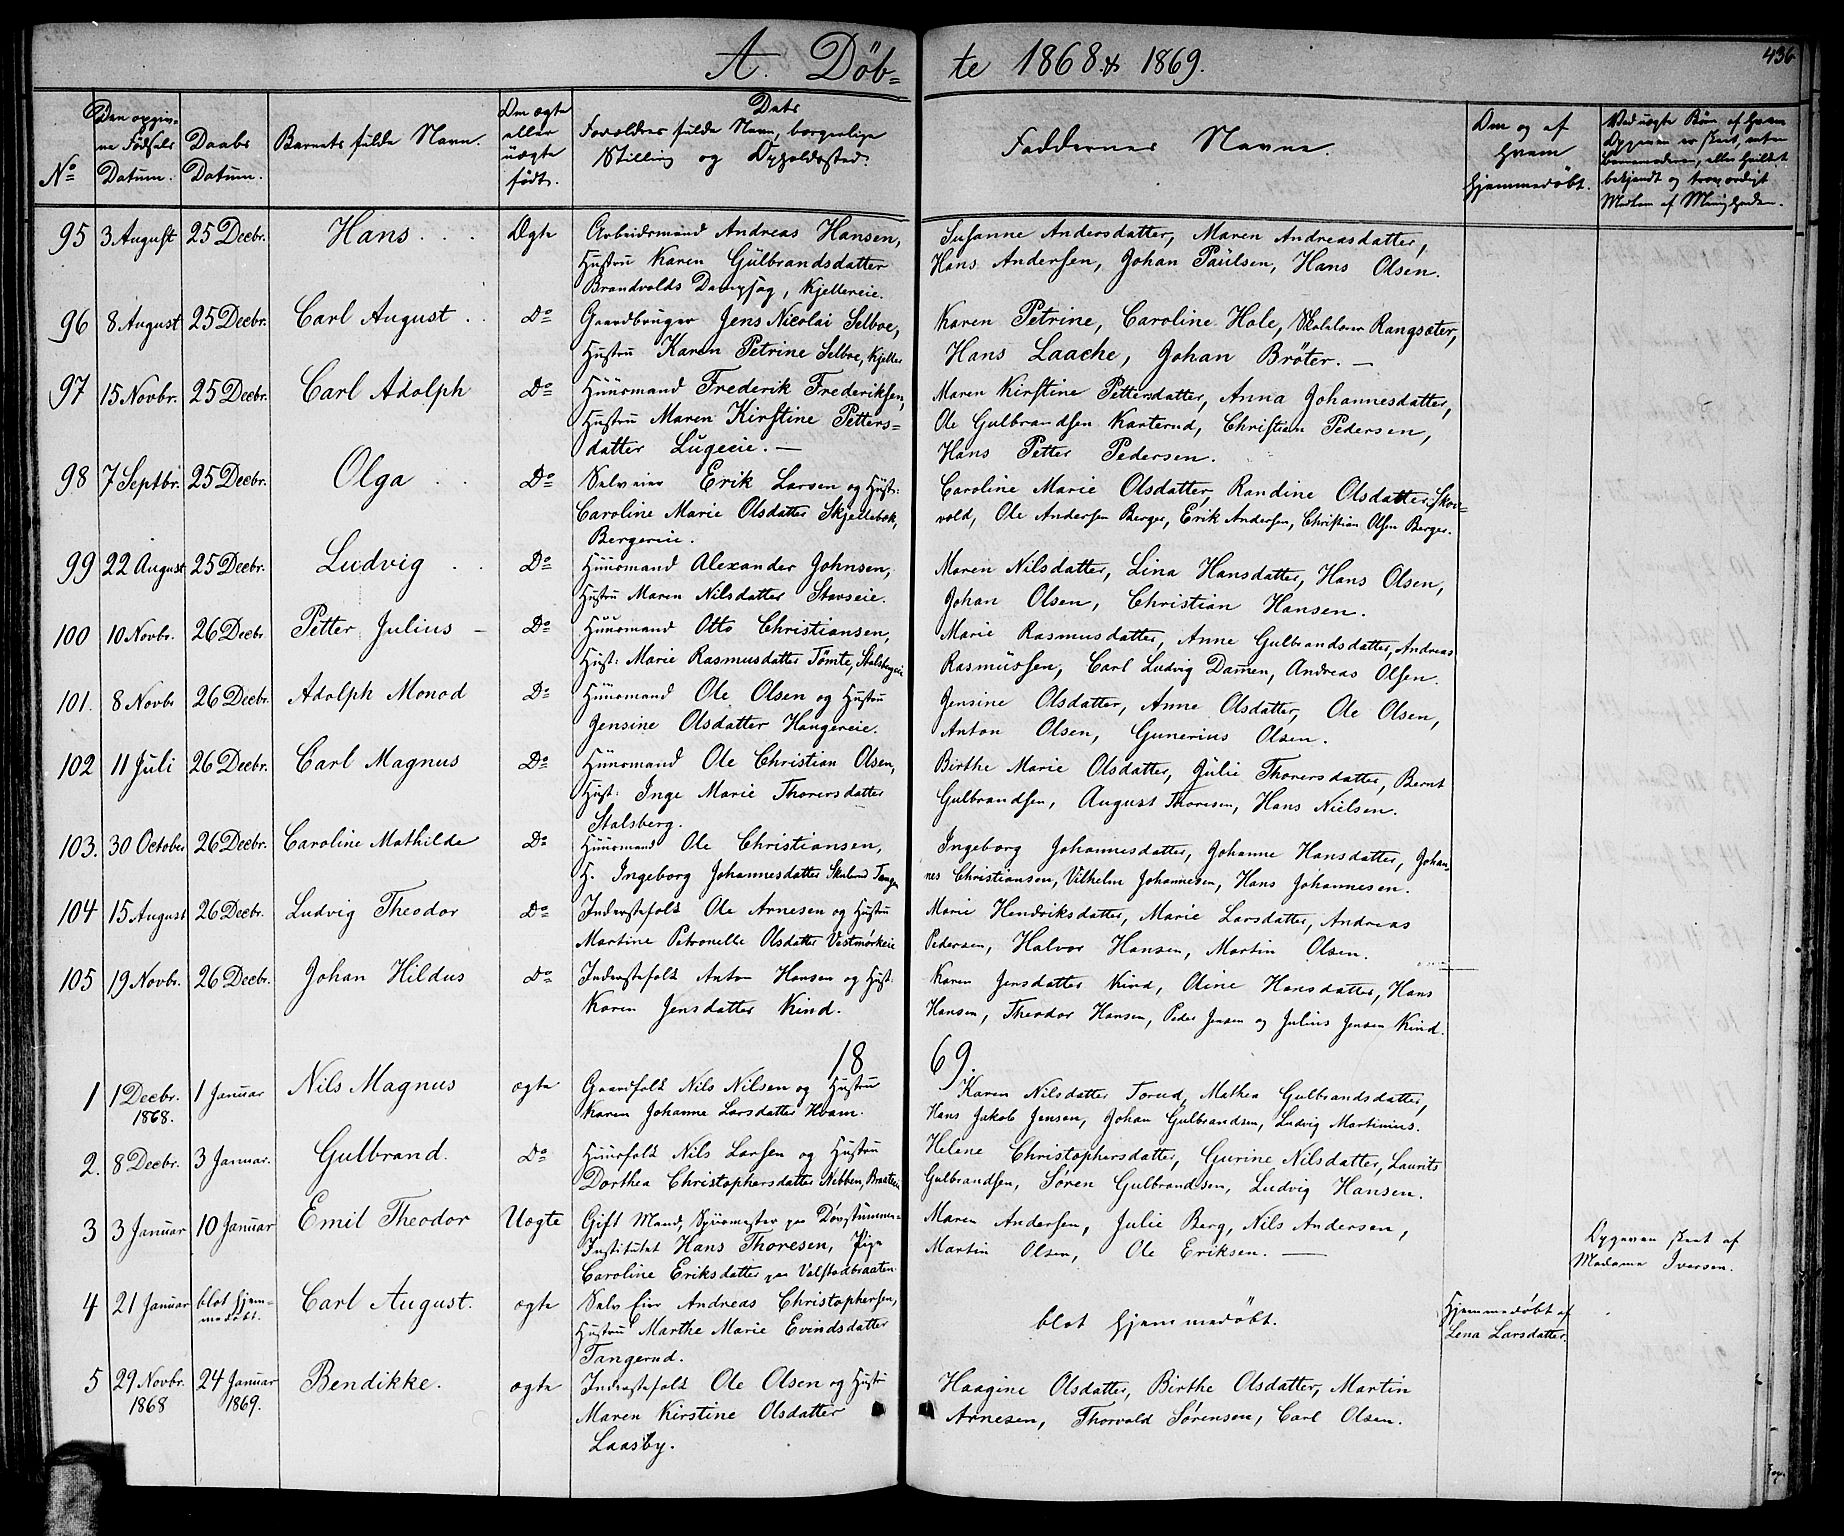 A. Döb= te 1868 & 1869.
436
No
Den opgiv=
ne Fødsels
Datum.
Daabs
Datum.
Barnets fulde Navn.
Om ægte
eller
uægte
født.
Dets
Forældres fulde Navn, borgerlige
Stilling og Opholdssted.
Faddernes Navne.
Om og af
Hvem
hjemmedøbt.
Ved uægte Børn af hvem
Opgaven er skeet, enten
Barnemoderen, eller hvilket
bekjendt og troværdigt
Medlem af Menigheden.
95 3 August 25 Decbr. Hans Ægte Arbeidsmand Andreas Hansen, Susanne Andersdatter, Maren Andreasdatter,
Hustru Karen Gulbrandsdatter Hans Andersen, Johan Paulsen, Hans Olsen.
Brandvolds Dampsag, Kjellereie.
96 8 August 25 Decbr. Carl August Do Gaardbruger Jens Nicolai Selboe, Karen Petrine, Caroline Hole, Skolelærer Rangsæter,
Hustru Karen Petrine Selboe, Kjeller Hans Laache, Johan Brøter. —
97 15 Novbr. 25 Decbr. Carl Adolph Do Huusmand Frederik Frederiksen, Maren Kirstine Pettersdatter, Anna Johannesdatter,
Hustru Maren Kirstine Petters= Ole Gulbrandsen Karterud, Christian Pedersen,
datter Lugeeie. — Hans Petter Pedersen.
98 7 Septbr. 25 Decbr. Olga Do Selveier Erik Larsen og Hust: Caroline Marie Olsdatter, Randine Olsdatter Skov=
Caroline Marie Olsdatter Skjellebæk, vold, Ole Andersen Berger, Erik Andersen, Christian Olsen Berger.
Bergereie.
99 22 August 25 Decbr. Ludvig Do Huusmand Alexander Johnsen, Maren Nilsdatter, Lina Hansdatter, Hans Olsen,
Hustru Maren Nilsdatter Stavseie. Johan Olsen, Christian Hansen.
100 10 Novbr. 26 Decbr. Petter Julius — Do Huusmand Otto Christiansen, Marie Rasmusdatter, Anne Gulbrandsdatter, Andreas
Hust: Marie Rasmusdatter Tömte, Stalsbergeie Rasmussen, Carl Ludvig Damen, Andreas Olsen.
101. 8 Novbr 26 Decbr. Adolph Monod Do Huusmand Ole Olsen og Hustru Jensine Olsdatter, Anne Olsdatter, Ole Olsen,
Jensine Olsdatter Haugereie. Anton Olsen, Gunerius Olsen.
102 11 Juli 26 Decbr. Carl Magnus Do Huusmand Ole Christian Olsen, Birthe Marie Olsdatter, Julie Thorersdatter, Bernt
Hust: Inge Marie Thorersdatter Gulbrandsen, August Thoresen, Hans Nielsen.
Stalsberg.
103. 30 October 26 Decbr. Caroline Mathilde Do Huusmand Ole Christiansen, Ingeborg Johannesdatter, Johanne Hansdatter, Johan=
H. Ingeborg Johannesdatter Tangen nes Christiansen, Vilhelm Johannesen, Hans Johannesen.
104 15 August 26 Decbr. Ludvig Theodor Do Inderstefolk Ole Arnesen og Hustru Marie Hendriksdatter, Marie Larsdatter, Andreas
Martine Petronelle Olsdatter Vestmørkeie Pedersen, Halvor Hansen, Martin Olsen.
105 19 Novbr. 26 Decbr. Johan Hildus Do Inderstefolk Anton Hansen og Hust. Karen Jensdatter Kind, Oline Hansdatter, Hans
Karen Jensdatter Kind. Hansen, Theodor Hansen, Peder Jensen og Julius Jensen Kind.
18 69.
1 1 Decbr. 1 Januar Nils Magnus ægte Gaardfolk Nils Nilsen og Hustru Karen Nilsdatter Torud, Mathea Gulbrandsdatter,
1868. Karen Johanne Larsdatter Hvam. Hans Jakob Jensen, Johan Gulbrandsen, Ludvig Martinius.
2. 8 Decbr. 3 Januar. Gulbrand. Do Huusfolk Nils Larsen og Hustru Helene Christophersdatter, Gurine Nilsdatter, Laurits
Dorthea Christophersdatter Nebben, Gulbrandsen, Søren Gulbrandsen, Ludvig Hansen.
3 3 Januar 10 Januar Emil Theodor Uægte Gift Mand, paa Døvstumme= Maren Andersen, Julie Berg, Nils Andersen,
Institutet Hans Thoresen, Pige Martin Olsen, Ole Eriksen. —
Caroline Eriksdatter paa Valstadbraaten Opgaven skeet af
Madame Iversen.
4 21 Januar blot hjem=
medøbt. Carl August. ægte Selveier Andreas Christophersen, blot hjemmedøbt. Hjemmedøbt af
Hustru Marthe Marie Evindsdatter Lena Larsdatter
Tangerud.
5 29 Novbr. 24 Januar Bendikke. ægte Inderstefolk Ole Olsen og Hust: Haagine Olsdatter, Birthe Olsdatter, Martin
1868 1869. Maren Kirstine Olsdatter Arnesen, Thorvald Sørensen, Carl Olsen.
Laasby.